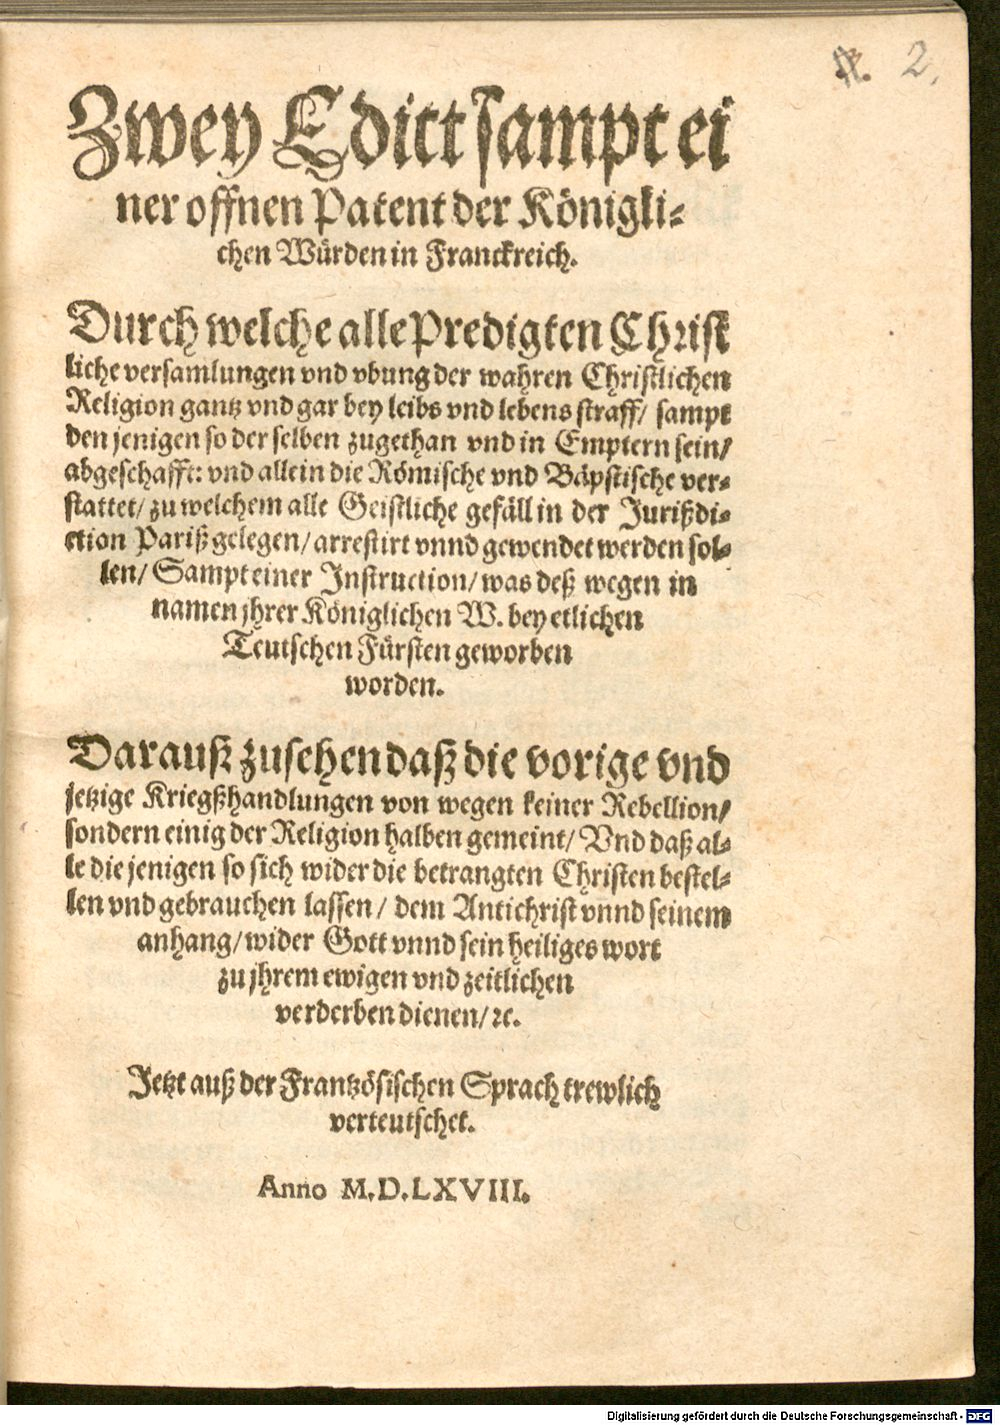 2.
Zwey Edict sampt ei
ner offnen Patent der Königli-
chen Würden in Franckreich.
Durch welche alle Predigten Christ
liche versamlungen vnd vbung der wahren Christlichen
Religion gantz vnd gar bey leibs vnd lebens straff/ sampt
den jenigen so der selben zugethan vnd in Emptern sein/
abgeschafft: vnd allein die Römische vnd Bäpstische ver-
stattet/ zu welchem alle Geistliche gefäll in der Jurißdi-
ction Pariß gelegen/ arrestirt vnnd gewendet werden sol-
len/ Sampt einer Instruction/ was deß wegen in
namen jhrer Königlichen W. bey etlichen
Teutschen Fürsten geworben
worden.
Darauß zusehen daß die vorige vnd
jetzige Kriegßhandlungen von wegen keiner Rebellion/
sondern einig der Religion halben gemeint/ Vnd daß al-
le die jenigen so sich wider die betrangten Christen bestel-
len vnd gebrauchen lassen/ dem Antichrist vnnd seinem
anhang/ wider Gott vnnd sein heiliges wort
zu jhrem ewigen vnd zeitlichen
verderben dienen/ ꝛc.
Jetzt auß der Frantzösischen Sprach trewlich
verteutschet.
Anno M.D.LXVIII.
Digitalisierung gefördert durch die Deutsche Forschungsgemeinschaft - DFG